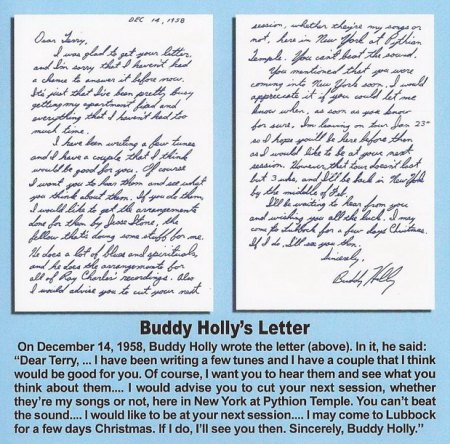 DEC 14, 1958
Dear Terry,
I was glad to get your letter,
and I'm sorry that I haven't had
a chance to answer it before now.
It's just that I've been pretty busy
getting my apartment fixed and
everything that I haven't had too
much time.
I have been writing a few tunes
and I have a couple that I think
would be good for you. Of course
I want you to hear them and see what
you think about them. If you do them
I would like to get the arrangements
done for them by Jesse Stone, the
fellow that's doing some stuff for me.
He does a lot of blues and spirituals,
and he does the arrangements for
all of Ray Charles' recordings. Also
I would advise you to cut your next
session, whether they're my songs or
not, here in New York at Pythian
Temple. You can't beat the sound.
You mentioned that you were
coming into New York soon. I would
appreciate it if you could let me
know when, as soon as you know
for sure. I'm leaving on tour Jan 23rd
so I hope you'll be here before then
as I would like to be at your next
session. However that tour doesn't last
but 3 wks, and I'll be back in New York
by the middle of Feb.
I'll be waiting to hear from you
and wishing you all the luck. I may
come to Lubbock for a few days Christmas.
If I do, I'll see you then.
Sincerely,
Buddy Holly
Buddy Holly's Letter
On December 14, 1958, Buddy Holly wrote the letter (above). In it, he said:
"Dear Terry, ... I have been writing a few tunes and I have a couple that I think
would be good for you. Of course, I want you to hear them and see what you
think about them.... I would advise you to cut your next session, whether
they're my songs or not, here in New York at Pythion Temple. You can't beat
the sound.... I would like to be at your next session.... I may come to Lubbock
for a few days Christmas. If I do, I'll see you then. Sincerely, Buddy Holly."